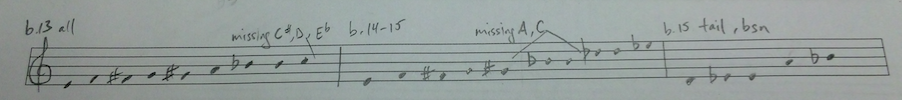 b.13 all
missing C#, D, Eb
b.14-15
missing A, C
b.15 tail, bsn